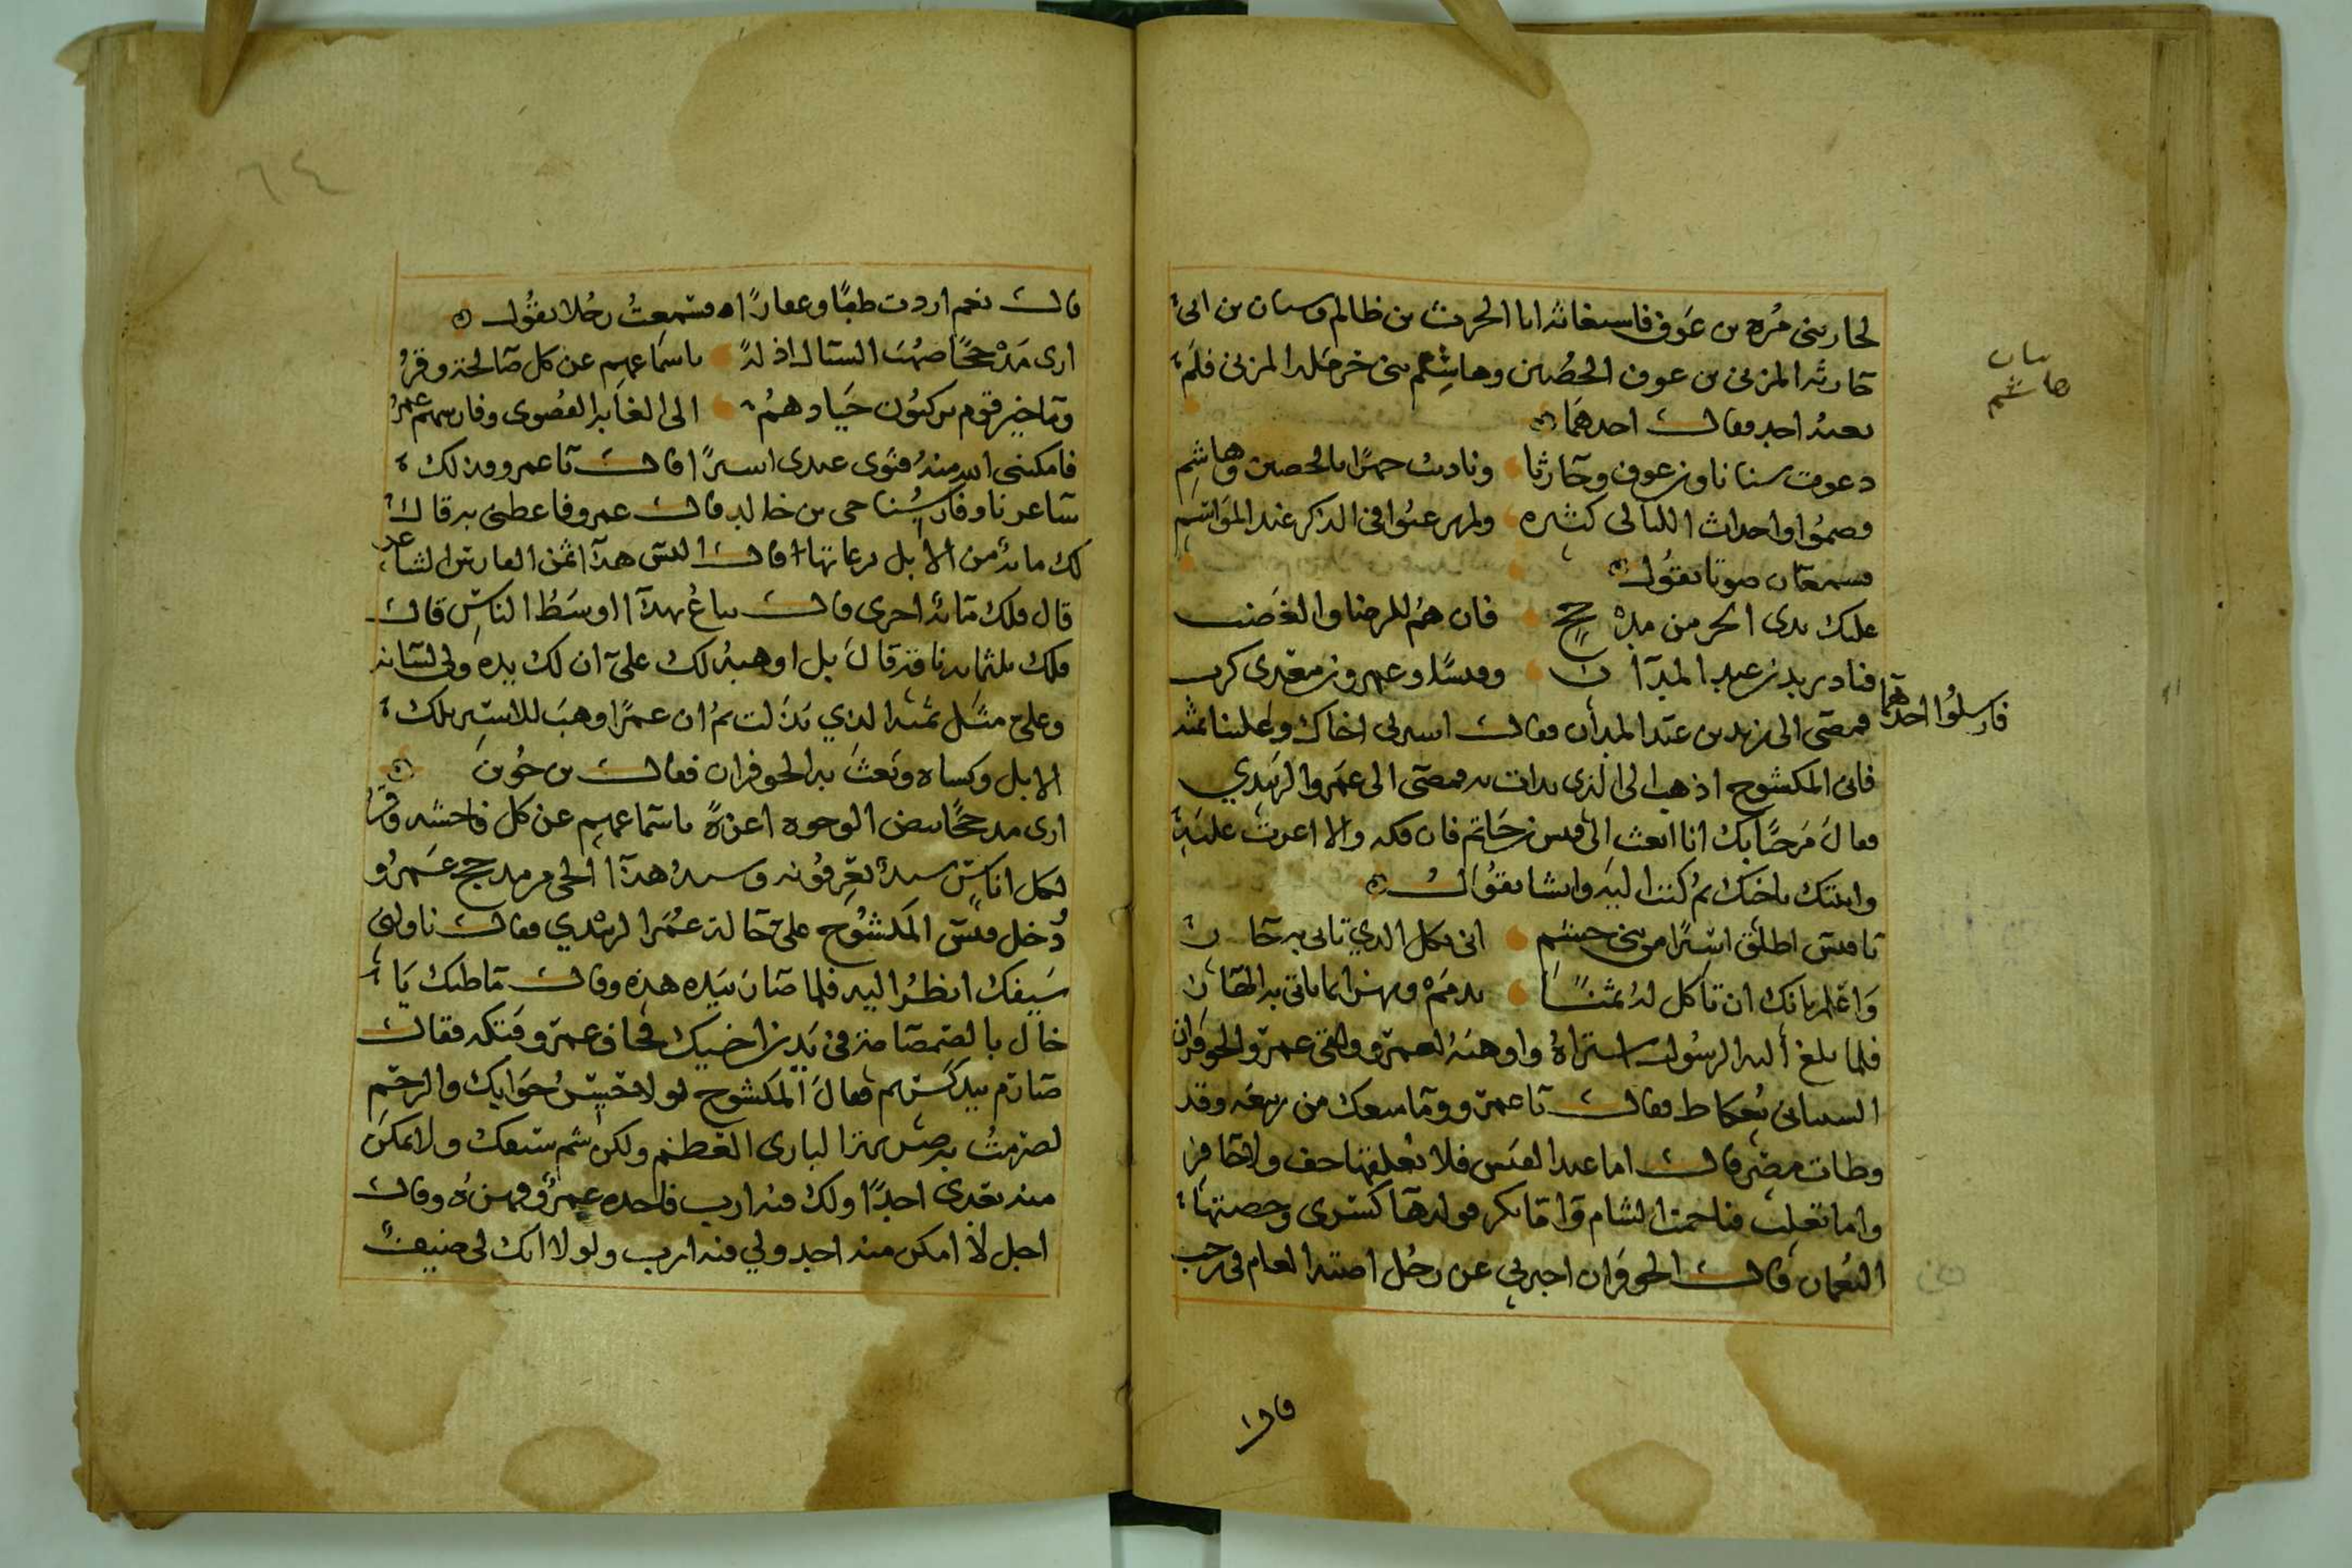 لجار بنى مُرة بن عَوف فاستغاثه ابا الحرث بن ظالم وسنان بن ابى
حارثه المزنى بن عوف الحصين وهاشم بنى حرمله المزنى فلم
يعنه احد فقال احدهما
دعوت سنانا وبن عوف وحارثا وناديت جهرًا بالحصين وهاشم
فصمُوا واحداث الليالى كثيره ولم يرعوا فى الذكر عند المواسم
فسمعان صوتا يقول
عليك بدى الحر من مذحج فان هم للرضا والغضب
فناد يزيد بن عبد المدان وقيسًا وعمرو بن معدى كرب
فارسلوا احدهما
فمضى الى يزيد بن عبد المدان فقال اسرلى اخاك وعلينا ثمنه
فاتى المكشوح اذهب الى الذى بدات به فمضى الى عمرو الزبيدي
فقال مرحبًا بك انا ابعث الى قيس بن حاتم فان فكه والا اغرت عليه
واتيتك باخيك ثم كتب اليه وانشا يقول
يا قيس اطلق اسيرًا من بنى جشم انى بكل الذي تاتى به جان
واعلم بانك ان تاكل له ثمنًا
فلما بلغ اليه الرسول استراه واوهبه لعمرو ولقى عمرو الحوفزان
الشيبانى بعكاظ فقال يا عمرو وما منعك من ربيعه وقد
وطات مضر قال اما عبد القيس فلا خف ولا حافر
واما تغلب فناحيه الشام واما بكر كسرى وحصنها
النعمان قال الحوفزان اخبرنى عن رجل اصبته العام فى رجب
سنان
هاشم
قال
٦٤
قال نعم اردت طيبًا وعقارًا فسمعتُ رجُلا يقول
ارى مذحجًا صهب السبال اذله باسماعهم عن كل صالحة وقرُ
وما خير قوم يركبُون جيادهمُ الى الغايه القصوى وفارسهم عمرُ
فامكننى الله منه فثوى عندى اسيرًا قال يا عمرو وذلك
شاعرنا وفارسنا حى بن خالد قال عمرو فاعطنى به قال
لك مائة من الابل برعاتها قال اليس هذا ثمن الفارس الشاعر
قال فلك مائة اخرى قال يباعُ بهذا اوسطُ الناس قال
فلك ثلثمائه ناقه قال بل اوهبه لك على ان لك يده ولى لسانه
وعلى مثل ثمنه الذي بذلت ثم ان عمرًا وهب للاسير تلك
الابل وكساه وبعث به الحوفزان فقال بن حُوين
ارى مذحجًا بيض الوجوه اعزةً باسماعهم عن كل فاحشه وقرُ
لكل اناس سيدٌ يعرفونه وسيدُ هذا الحى من مذحج عمرُو
دُخل قيس المكشوح على خاله عمرو الزبيدي فقال ناولنى
سيفك انظُر اليه فلما صار بيده هزه وقال ما ظنك يا
خال بالصمصامة فى يد بن اخيك فخاف عمرو فتكه فقال
صارم بيد كريم فقال المكشوح لولا حسن جوابك والرحم
لضربتُ به ضربةً البارى العظيم ولكن شم سيفك ولا تمكن
منه بعدى احدًا ولك فيه ارب فاخده عمرو وهزه وقال
اجل لا امكن منه احد ولي فيه ارب ولولا انك لى ضيف